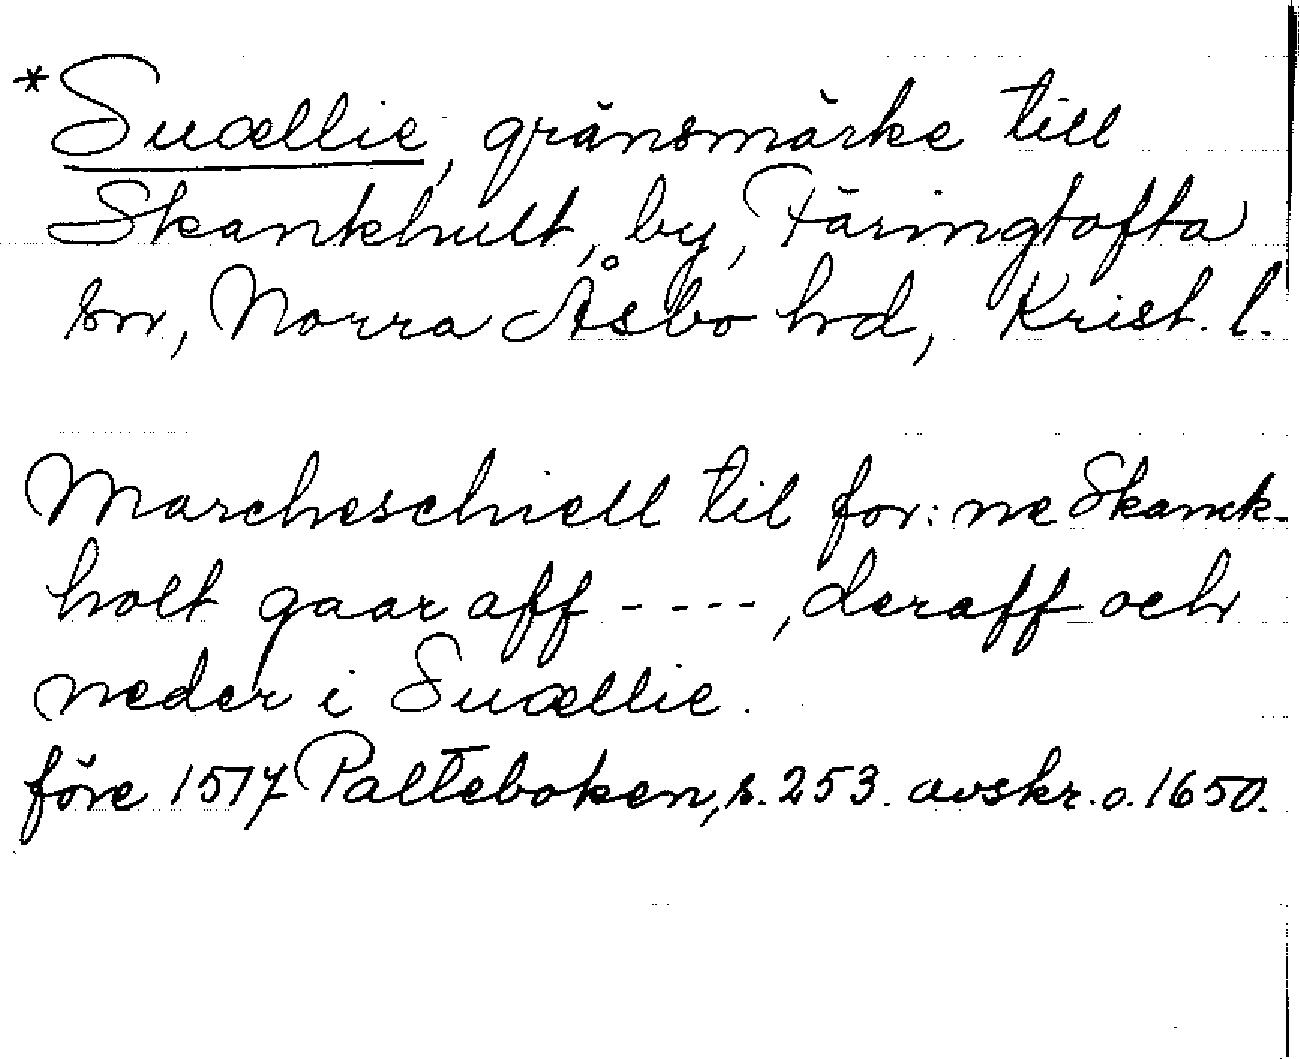 *Suællie, gränsmärke till
Skankhult, by, Färingtofta
sn, Norra Åsbo hd, Krist. l.
Marcheschiell til for: ne Skanck-
holt gaar aff - - - -, deraff och
neder i Suællie.
före 1517 Palteboken, s. 253. avskr. o. 1650.